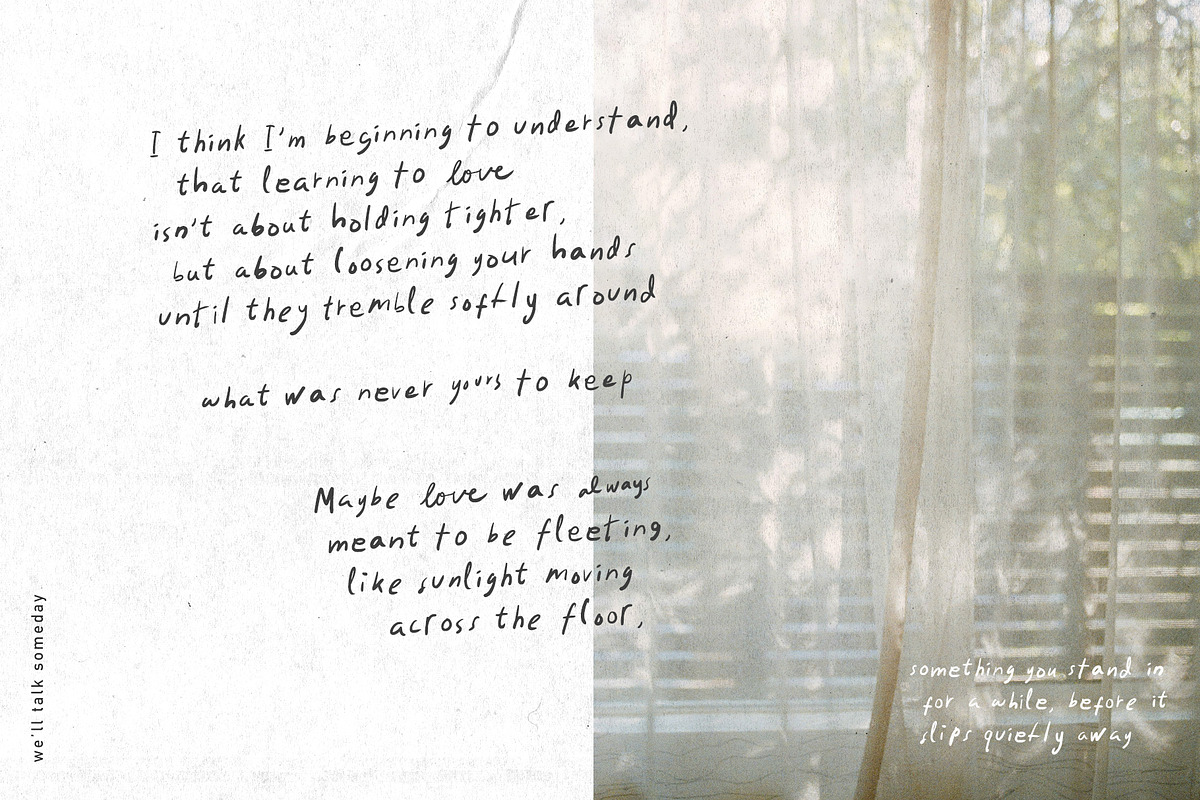 I think I'm beginning to understand,
that learning to love
isn't about holding tighter,
but about loosening your hands
until they tremble softly around
what was never yours to keep
Maybe love was always
meant to be fleeting,
like sunlight moving
across the floor,
something you stand in
for a while, before it
slips quietly away
we'll talk someday